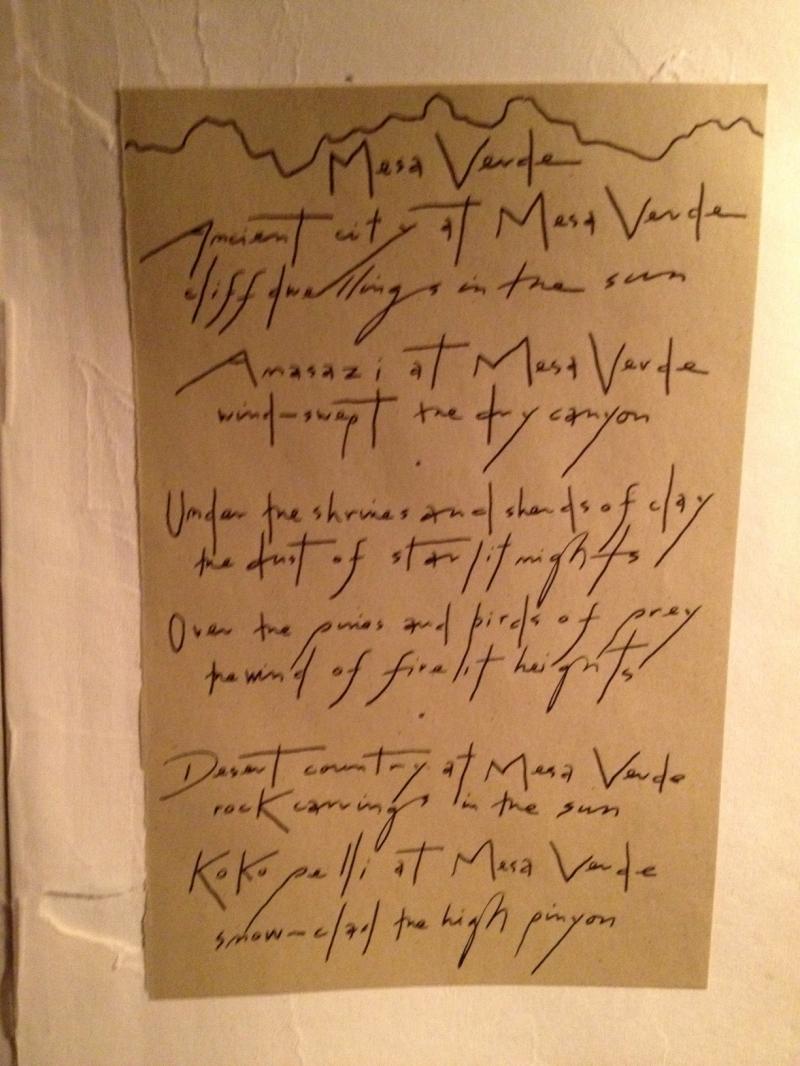 Mesa Verde
Ancient city at Mesa Verde
cliff dwellings in the sun
Anasazi at Mesa Verde
wind-swept the dry canyon
.
Under the shrines and shards of clay
the dust of starlit nights
Over the pines and birds of prey
the wind of firelit heights
.
Desert country at Mesa Verde
rock carvings in the sun
KoKopelli at Mesa Verde
snow-clad the high pinyon